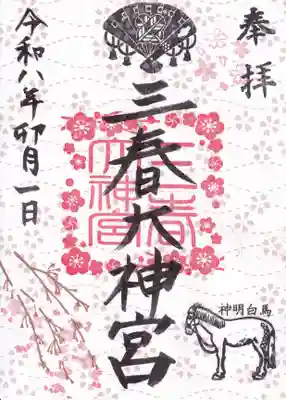 奉拝
三春大神宮
三春大神宮
神明白馬
令和八年卯月一日